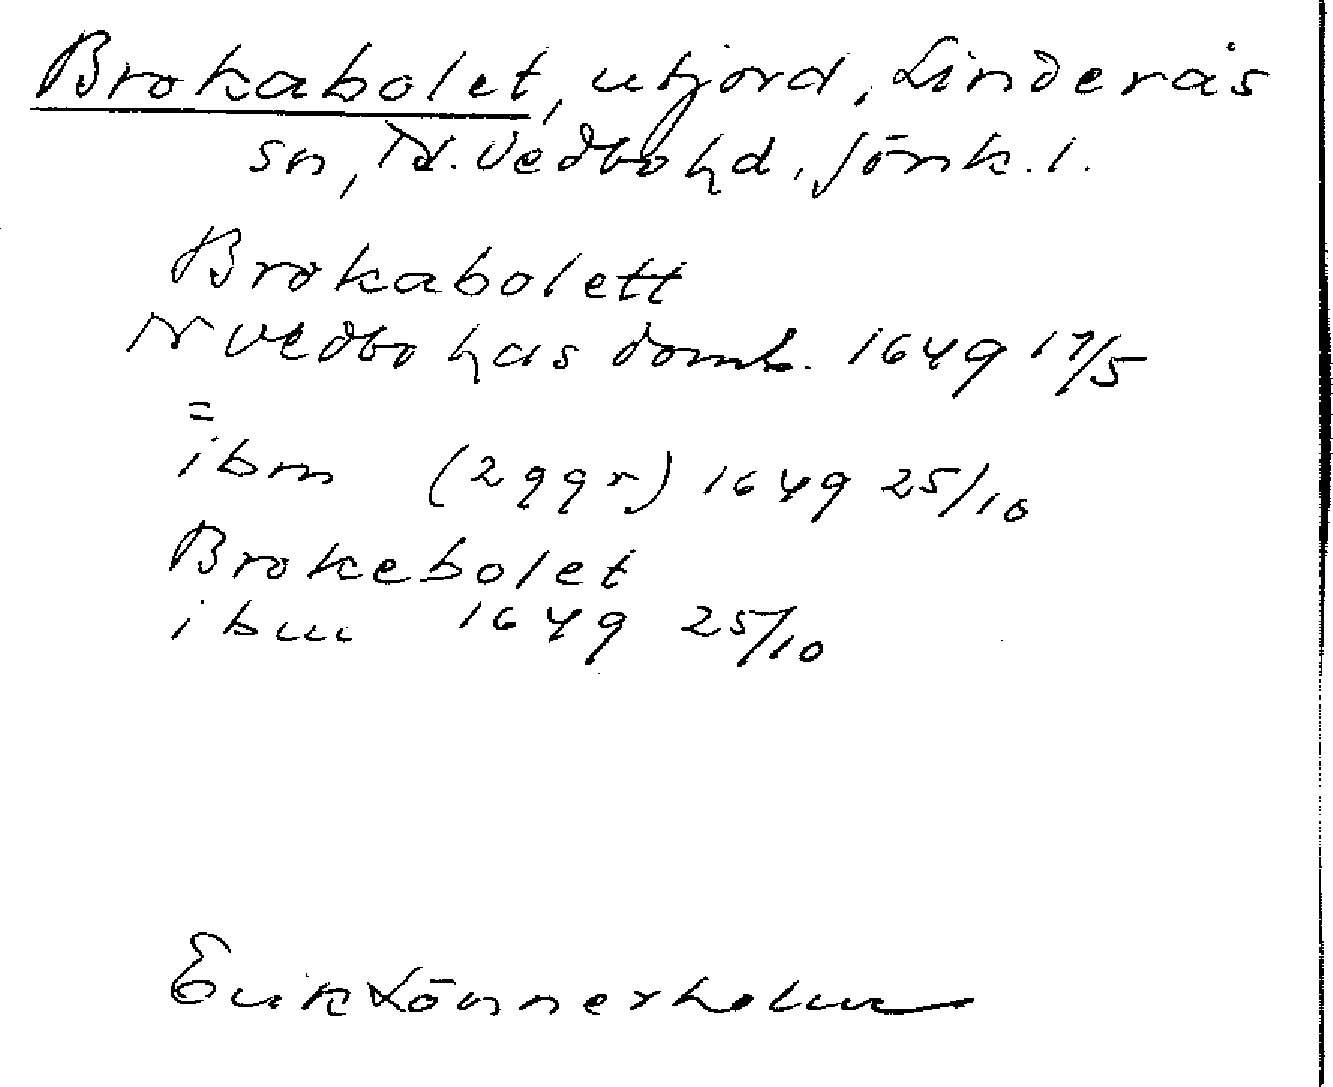 Brokabolet, utjord, Linderås
sn, N. Vedbo hd, Jönk. l.
Brokabolett
N Vedbo has domb. 1649 17/5
=
ibm (2 ggr) 1649 25/10
Brokebolet
ibm 1649 25/10
Erik Lönnerholm